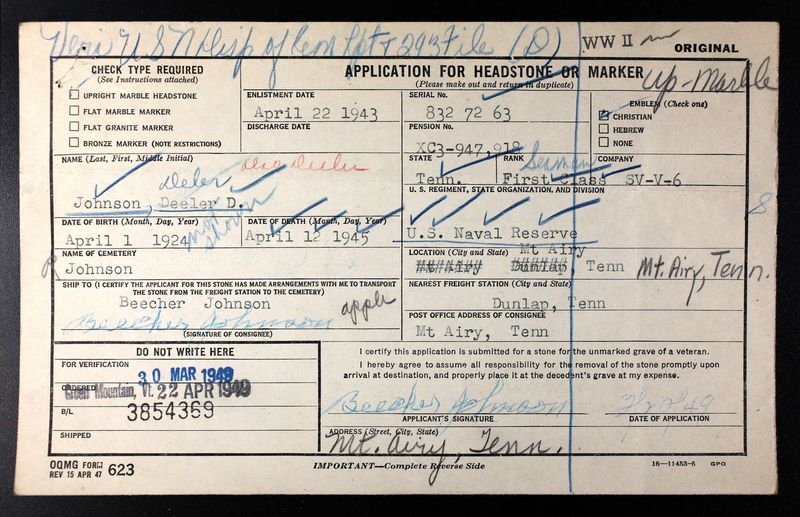 Veri U S N Disp of Rem Rpt + 293 File (D)
WW II
ORIGINAL
CHECK TYPE REQUIRED
(See Instructions attached)
UPRIGHT MARBLE HEADSTONE
FLAT MARBLE MARKER
FLAT GRANITE MARKER
BRONZE MARKER (NOTE RESTRICTIONS)
APPLICATION FOR HEADSTONE OR MARKER
(Please make out and return in duplicate)
up-Marble
ENLISTMENT DATE
April 22 1943
DISCHARGE DATE
SERIAL No.
832 72 63
PENSION No.
XC3-947,918
EMBLEM (Check one)
CHRISTIAN
HEBREW
NONE
NAME (Last, First, Middle Initial)
Deeler
Johnson, Deeler D.
STATE
Tenn.
RANK
Seaman
First Class
COMPANY
SV-V-6
U.S. REGIMENT, STATE ORGANIZATION, AND DIVISION
U.S. Naval Reserve
8
DATE OF BIRTH (Month, Day, Year)
April 1 1924
not shown
DATE OF DEATH (Month, Day, Year)
April 12 1945
NAME OF CEMETERY
Johnson
LOCATION (City and State)
Mt Airy
Mt Airy Dunlap, Tenn
Mt. Airy, Tenn.
SHIP TO (I CERTIFY THE APPLICANT FOR THIS STONE HAS MADE ARRANGEMENTS WITH ME TO TRANSPORT
THE STONE FROM THE FREIGHT STATION TO THE CEMETERY)
Beecher Johnson
appli
Beecher Johnson
(SIGNATURE OF CONSIGNEE)
NEAREST FREIGHT STATION (City and State)
Dunlap, Tenn
POST OFFICE ADDRESS OF CONSIGNEE
Mt Airy, Tenn
DO NOT WRITE HERE
FOR VERIFICATION
30 MAR 1949
ORDERED
Green Mountain, Vt. 22 APR 1949
B/L
3854369
SHIPPED
I certify this application is submitted for a stone for the unmarked grave of a veteran.
I hereby agree to assume all responsibility for the removal of the stone promptly upon
arrival at destination, and properly place it at the decedent's grave at my expense.
Beecher Johnson
APPLICANT'S SIGNATURE
DATE OF APPLICATION
ADDRESS (Street, City, State)
Mt. Airy, Tenn.
OQMG FORM
REV 15 APR 47
623
IMPORTANT—Complete Reverse Side
16—11453-6 GPO